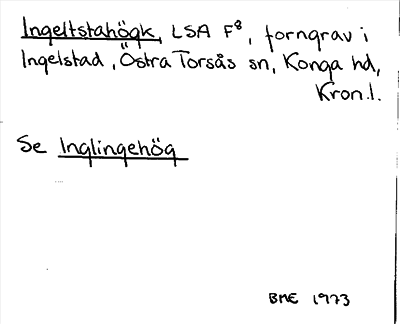 Ingeltstahögk, LSA F⁸, forngrav i
Ingelstad, Östra Torsås sn, Konga hd,
Kron.l.
Se Inglingehög
BME 1973